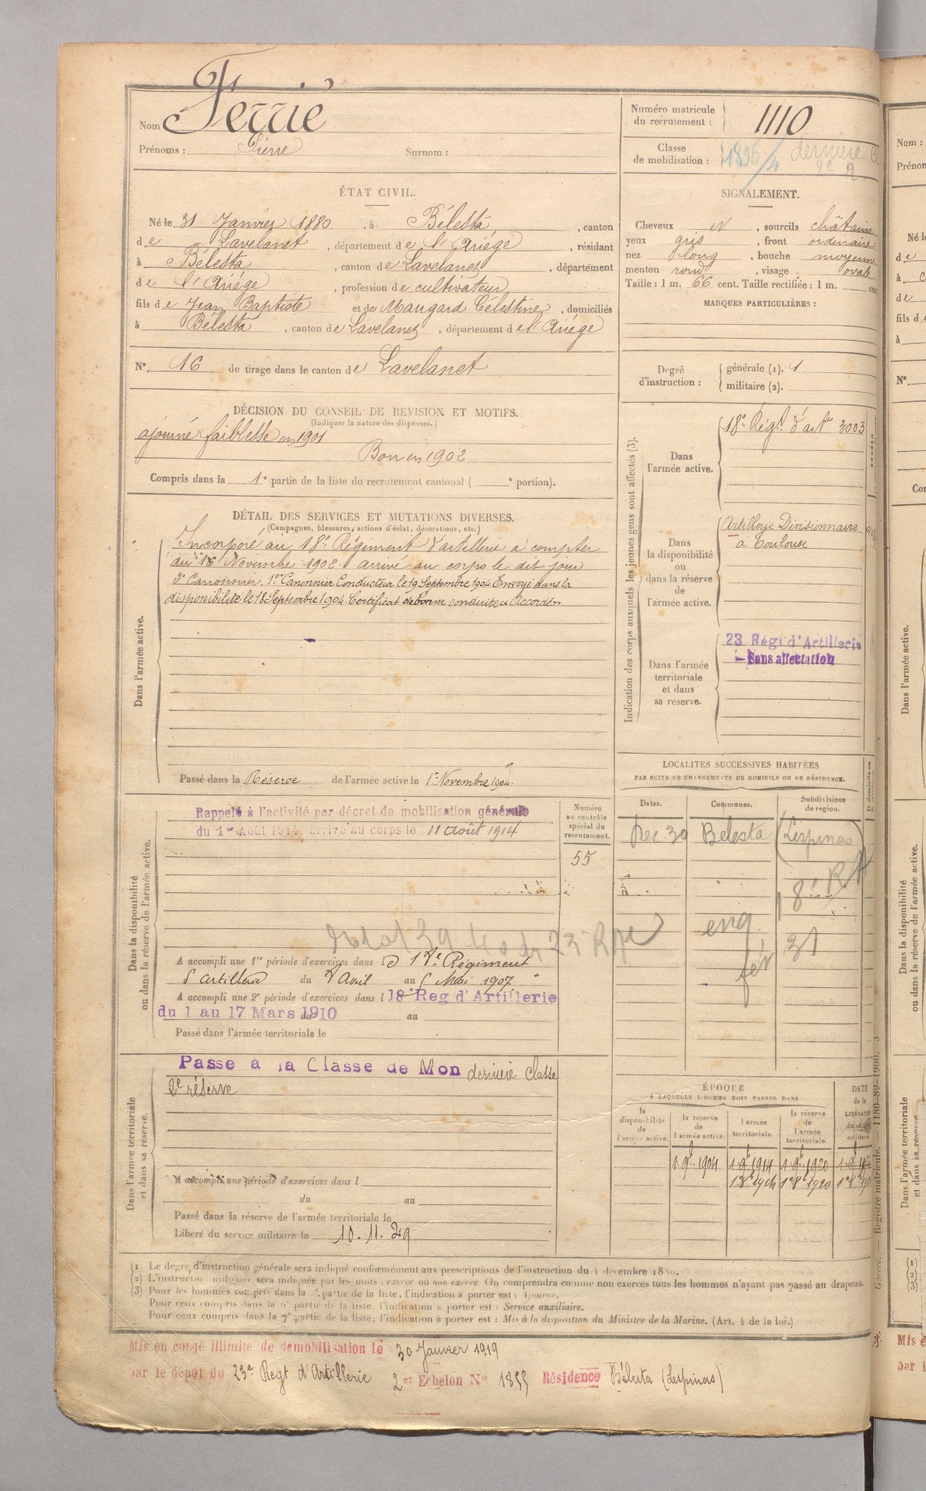 Nom Ferrié
Prénoms : Pierre Surnom :
Numéro matricule du recrutement : 1110
Classe de mobilisation : 1896/4 dernière
ÉTAT CIVIL.
Né le 31 Janvier 1880, à Bélesta, canton
de Lavelanet, département de l'Ariège, résidant
à Bélesta, canton de Lavelanet, département
de l'Ariège, profession de cultivateur
fils de Jean Baptiste et de Maugard Célestine, domiciliés
à Bélesta, canton de Lavelanet, département de l'Ariège
N° 16 de tirage dans le canton de Lavelanet
SIGNALEMENT.
Cheveux n, sourcils châtains
yeux gris, front ordinaire
nez long, bouche moyenne
menton rond, visage oval
Taille : 1 m. 66 cent. Taille rectifiée : 1 m. cent
MARQUES PARTICULIÈRES :
Degré d'instruction : générale (1). 1
militaire (2).
DÉCISION DU CONSEIL DE REVISION ET MOTIFS.
(Indiquer la nature des dispenses.)
ajourné faiblesse en 1901
Bon en 1902
Compris dans la 1e partie de la liste du recrutement cantonal ( e portion).
DÉTAIL DES SERVICES ET MUTATIONS DIVERSES.
(Campagnes, blessures, actions d'éclat, décorations, etc.)
Dans l'armée active.
Incorporé au 18e Régiment d'artillerie à compter
du 15 Novembre 1902. arrivé au corps le dit jour
2e Canonnier. 1er Canonnier Conducteur le 19 Septembre 1904. Envoyé dans la
disponibilité le 18 Septembre 1904. Certificat de bonne conduite "Accordé"
Passé dans la Réserve de l'armée active le 1er Novembre 1904.
Indication des corps auxquels les jeunes gens sont affectés (3).
Dans l'armée active.
18e Régt d'art 3003
Dans la disponibilité ou dans la réserve de l'armée active.
Artillerie Divisionnaire
à Toulouse
Dans l'armée territoriale et dans sa reserve.
23 Régt d'Artillerie
Sans affectation
LOCALITÉS SUCCESSIVES HABITÉES
PAR SUITE DE CHANGEMENTS DE DOMICILE OU DE RÉSIDENCE.
Dates. Communes. Subdivisions de région.
Dec 30 Bélesta (Lespinas)
18e RA
eng. 31
fév
Dans la disponibilité ou dans la réserve de l'armée active.
Rappelé à l'activité par décret de mobilisation générale
du 1er Août 1914, arrivé au corps le 11 août 1914
Numéro au contrôle spécial du recrutement.
55
A accompli une 1re période d'exercices dans le 18e Régiment
d'artillerie du 8 avril au 5 Mai 1907
A accompli une 2e période d'exercices dans l 18 Reg d'Artillerie
du 1 au 17 Mars 1910 au
Passé dans l'armée territoriale le
Dans l'armée territoriale et dans sa réserve.
Passé à la Classe de Mon dernière classe
2e réserve
A accompli une période d'exercices dans l
du au
Passé dans la réserve de l'armée territoriale le
Libéré du service militaire le 10.11.29
ÉPOQUE
À LAQUELLE L'HOMME DOIT PASSER DANS
la disponibilité de l'armée active. la réserve de l'armée active. l'armée territoriale. la réserve de l'armée territoriale.
DATE de la
1. 9bre 1904 1. 9bre 1914 1. 9bre 1920
(1) Le degré d'instruction générale sera indiqué conformément aux prescriptions de l'instruction du 4 décembre 18
(2) L'instruction militaire sera indiquée par les mots : exercé ou non exercé. On comprendra comme non exercés tous les hommes n'ayant pas passé au drapeau.
(3) Pour les hommes compris dans la partie de la liste, l'indication à porter est : Ajourné.
Pour ceux compris dans la partie de la liste, l'indication à porter est : Service auxiliaire.
Pour ceux compris dans la 7e partie de la liste, l'indication à porter est : Mis à la disposition du Ministre de la Marine. (Art. 4 de la loi.)
Mis en congé illimité de démobilisation le 30 Janvier 1919
par le dépôt du 23e Regt d'Artillerie 2er Echelon N° 1855 Résidence Bélesta (Lespinas)